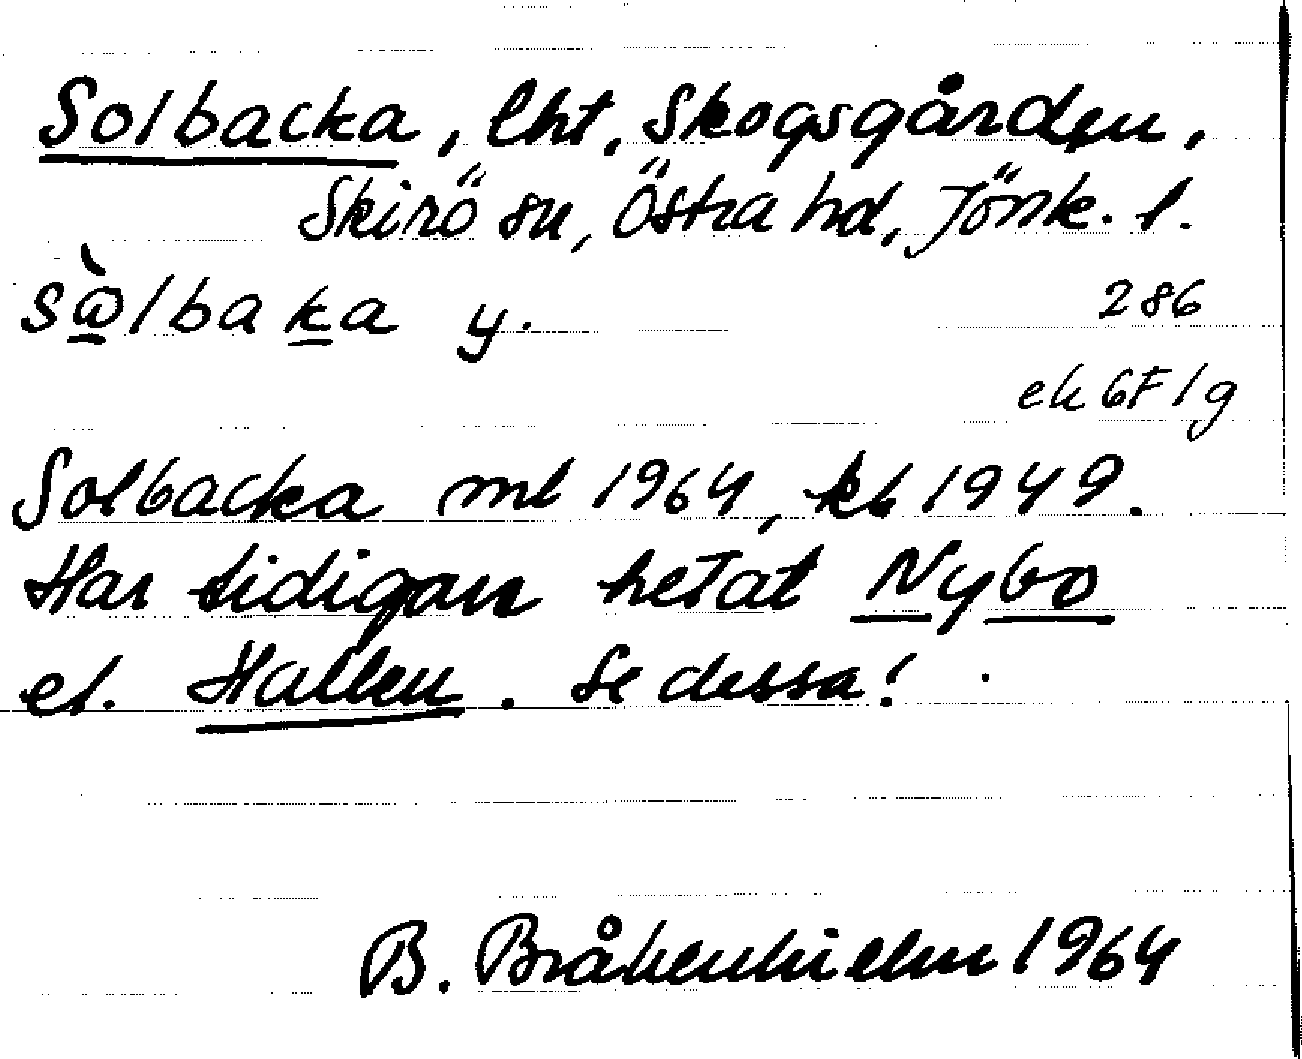 Solbacka, lht, Skogsgården,
Skirö sn, Östra hd, Jönk. l.
sὼlbaka y.
286
ek 6F1g
Solbacka ml 1964, kb 1949.
Har tidigare hetat Nybo
el. Hallen. Se dessa!
B. Bråkenhielm 1964